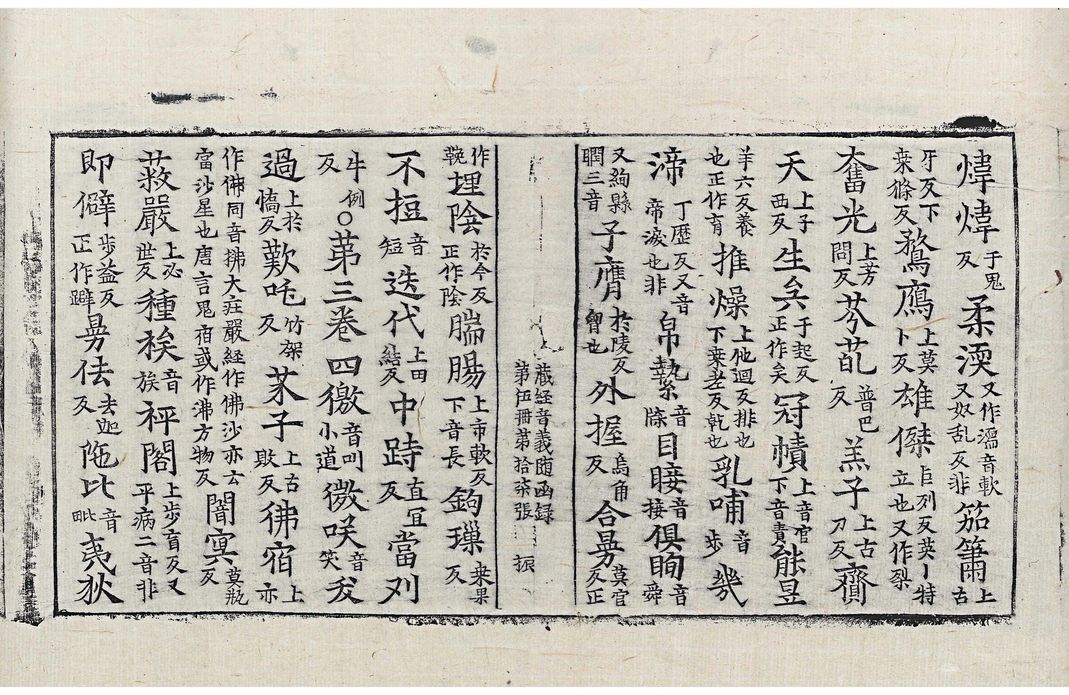 煒煒于鬼反柔渜又作濡音軟又奴乱反非笳筩上古
牙反下桒絛反鶩鴈上莫卜反雄傑巨列反英丨特立也又作㮚
奮光上芳問反芬葩普巴反羔子上古刀反齎
天上子西反生矣于起反正作矣冠幘上音官下音責能昱
羊六反養也正作育推燥上他迴反排也下桒老反乹也乳哺音步幾
渧丁歷反又音帝渧也非帛縶音牒目睫音接俱眴音舜
又絢縣瞤三音子膺於陵反曾也外握烏角反合㝠莫官反正
藏經音義随函録第伍冊第拾柒張 振
作鞕埋陰於今反正作陰腨腸上市軟反下音長鉤璅桒果反
不梪音短迭代上田結反中跱直里反當列
牛例反〇第三卷四徼音叫小道㣲咲音笑犮
過上於憍反歎吒竹架反芥子上古敗反彿宿上亦
作佛同音拂大疰嚴經作佛沙亦云富沙星也唐言鬼宿或作沸方物反闇㝠莫瓶反
蔱嚴上必世反種䅩音族秤閣上步盲反又平病二音非
即僻步益反正作躃㝵佉去迦反阤比音毗夷狄